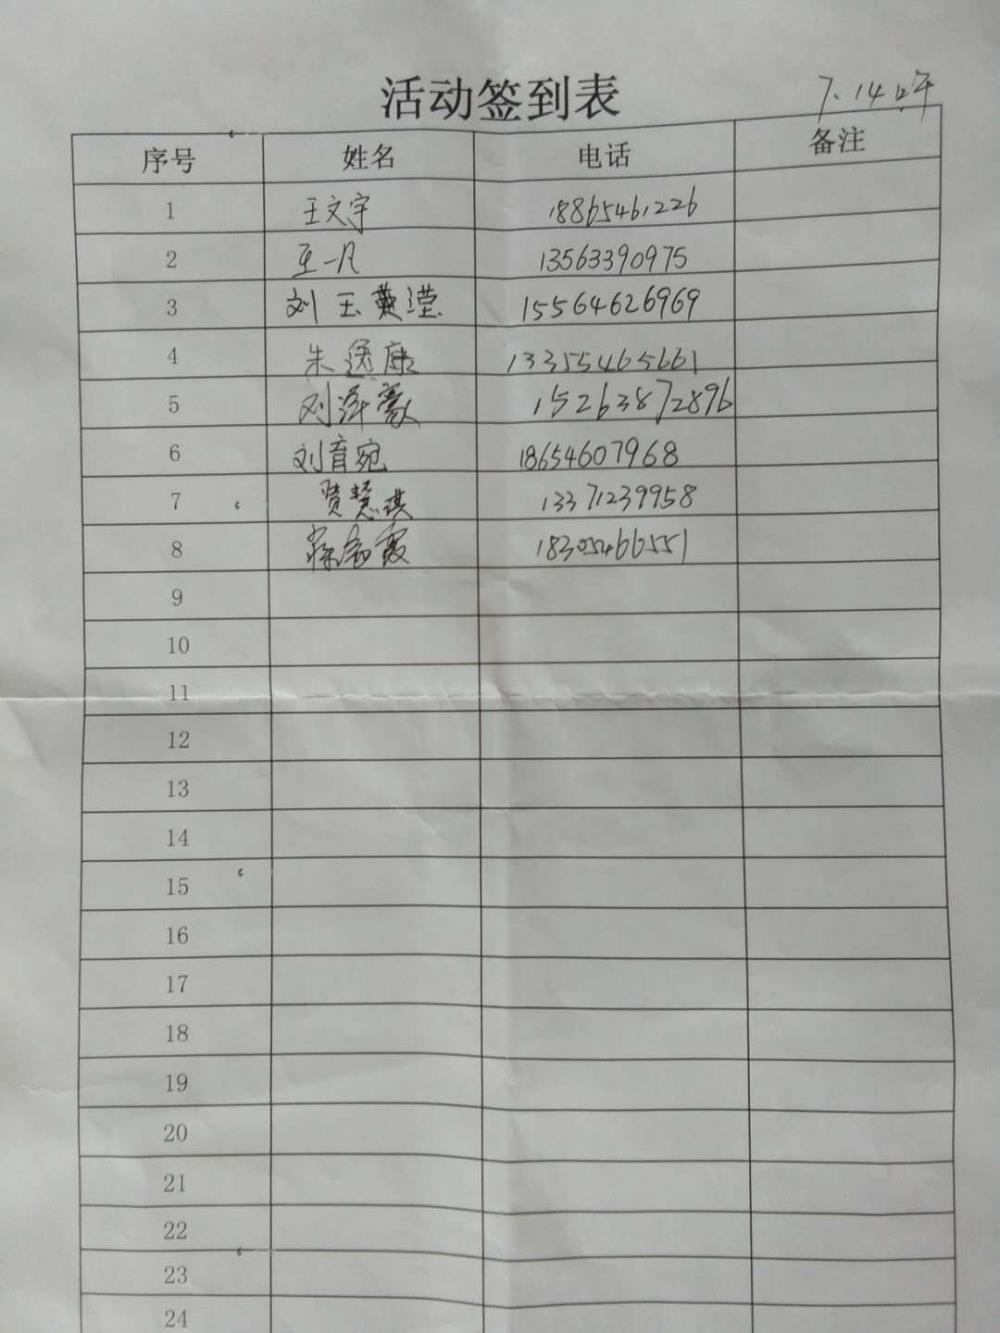 活动签到表
7.14
序号 姓名 电话 备注
1 王文宇 18865461226
2 王一凡 13563390975
3 刘玉 滢 15564626969
4 朱逸康 13355465661
5 刘泽豪 15263872896
6 刘育宛 18654607968
7 贾慧琪 13371239958
8 霞 18305466551
9
10
11
12
13
14
15
16
17
18
19
20
21
22
23
24